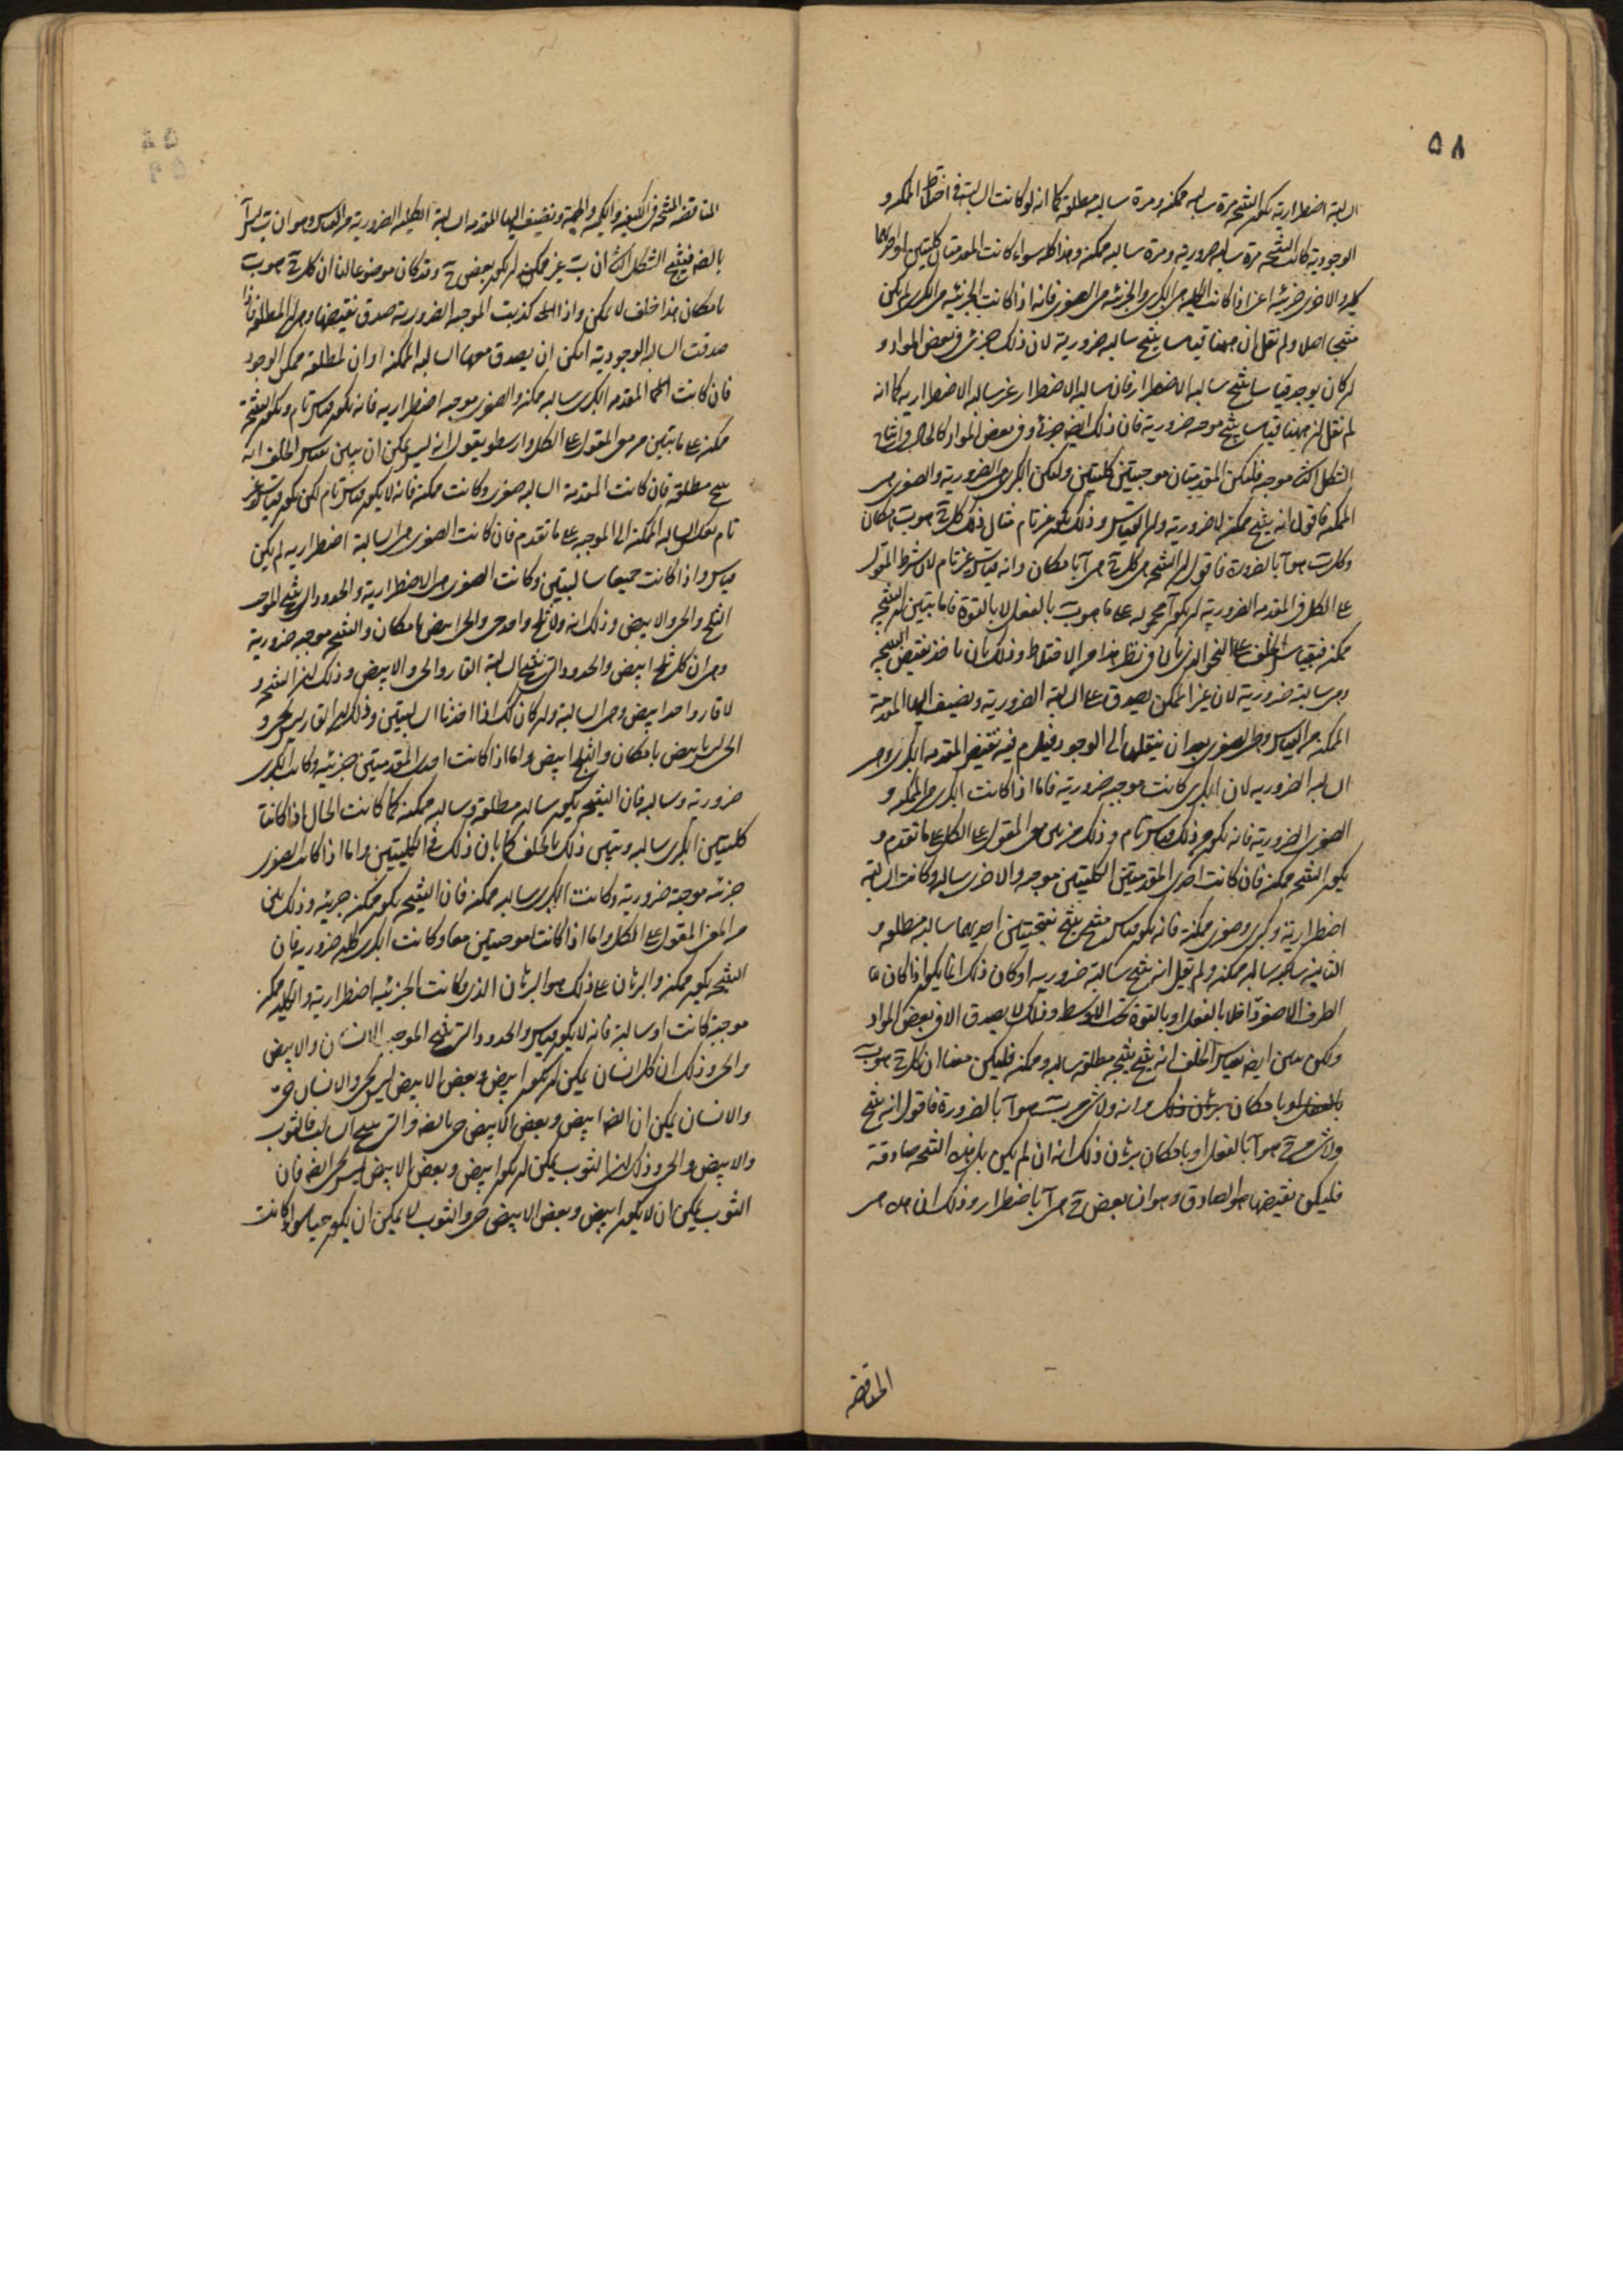 ٥٨
السالبة اضطرارية تكون النتيجة مرة سالبه ممكنه ومرة سالبه مطلقة كما انه لو كانت السالبة في اختلاط الممكنه و
الوجودية كانت النتيجة مرة سالبه ضروريه ومرة سالبه ممكنه وهذا كله سواء كانت المقدمتان كليتين او احديهما
كليه والاخرى جزئيه اعنى اذا كانت الكليه هى الكبرى والجزئيه هى الصغرى فانه اذا كانت الجزئيه هى الكبرى لم يكن
منتجا اصلا ولم نقل ان ههنا قياسا ينتج سالبه ضرورية لان ذلك جزئى فى بعض المواد و
ان كان يوجد قياسا ينتج سالبه الاضطرار فان سالبه الاضطرار غير سالبه الاضطراريه كما انه
لم نقل ان ههنا قياسا ينتج موجبه ضرورية فان ذلك ايضا جزئى وفى بعض المواد كالحال فى انتاج
الشكل الثالث موجبه فلتكن المقدمتان موجبتين كليتين ولتكن الكبرى هى الضرورية والصغرى هى
الممكنه فاقول انه ينتج ممكنة لا ضرورية وان القياس فى ذلك يكون غير تام مثال ذلك كل ج هو ب بامكان
وكل ب هو آ بالضرورة فاقول ان النتيجه هى كل ج هى آ بامكان وانه قياس غير تام لان شرط المقول
على الكل فى المقدمه الضروريه ان يكون آ محموله على ما هو ب بالفعل لا بالقوة فاما تبيين ان النتيجه
ممكنه فبقياس الخلف على النحو الذى بان فى نظر هذا من الاختلاط وذلك بان ناخذ نقيض النتيجه
وهى سالبة ضرورية لان غير الممكن يصدق على السالبة الضرورية ونضيف اليها المقدمة
الممكنه من القياس وهى الصغرى بعد ان ننقلها الى الوجود فيلزم فيه نقيض المقدمه الكبرى وهى
السالبه الضروريه لان الكبرى كانت موجبه ضرورية فاما اذا كانت الكبرى هى الممكنه و
الصغرى الضرورية فانه يكون عن ذلك قياس تام وذلك من معنى المقول على الكل على ما تقدم و
تكون النتيجه ممكنه فان كانت احدى المقدمتين الكليتين موجبه والاخرى سالبه وكانت السالبة
اضطرارية وكبرى وصغرى ممكنة فانه يكون قياس منتج ينتج نتيجتين احديهما سالبه مطلقه و
الثانيه سالبه ممكنه ولم نقل انه ينتج سالبة ضرورية اذ كان ذلك انما يكون اذا كان
الطرف الاصغر داخلا بالفعل او بالقوة تحت الاوسط وذلك لا يصدق الا فى بعض المواد
ولكن نبين ايضا بقياس الخلف انه ينتج نتيجه مطلقه سالبه وممكنه فليكن معنا ان كل ج هو ب
بالفعل او بامكان برهان ذلك وانه ولا شى من ب هو آ بالضرورة فاقول انه ينتج
ولا شى من ج هو آ بالفعل او بامكان برهان ذلك انه ان لم تكن هذه النتيجه صادقة
فليكن نقيضها هو الصادق وهو ان بعض ج هى آ باضطرار وذلك ان هذه هى
المناقضه
المناقضه للنتيجه فى الكيفيه والكميه والجهة ونضيف اليها المقدمه السالبة الكليه الضرورية من القياس وهو ان ب ليس آ
بالضرورة فينتج الشكل الثانى ان ب غير ممكن ان يكون بعض ج وقد كان موضوعا لنا ان كل ج هو ب
بامكان هذا خلف لا يمكن واذا كذبت الموجبه الضرورية صدق نقيضها وهى المطلقة فاذا
صدقت السالبه الوجودية امكن ان يصدق معها السالبه الممكنه اذ ان المطلقه ممكن الوجود
فان كانت المقدمه الكبرى سالبه ممكنه والصغرى موجبه اضطراريه فانه يكون قياس تام وتكون النتيجة
ممكنه على ما تبين من معنى المقول على الكل وارسطو يقول انه ليس يمكن ان يبين بقياس الخلف انه
ينتج مطلقه فان كانت المقدمة السالبه صغرى وكانت ممكنه فانه لا يكون قياس تام لكن يكون قياس غير
تام بعكس السالبه الممكنة الى الموجبه على ما تقدم فان كانت الصغرى هى السالبة اضطراريه لم يكن
قياس واذا كانت جميعا سالبتين وكانت الصغرى هى الاضطرارية والحدود التى تنتج الموجب
الثلج والحى والابيض وذلك انه ولا ثلج واحد حى والحى ابيض بامكان والنتيجه موجبه ضرورية
وهى ان كل ثلج ابيض والحدود التى تنتج السالبة القار والحى والابيض وذلك ان النتيجه
لا قار واحد ابيض وهى السالبة وان كان كذلك اذا اخذنا السالبتين وذلك ان القار ليس بحى و
الحى ليس بابيض بامكان والثلج ابيض واما اذا كانت احدى المقدمتين جزئيه وكانت الكبرى
ضرورية وسالبه فان النتيجه تكون سالبه مطلقة وسالبه ممكنه كما كانت الحال اذا كانتا
كليتين الكبرى سالبه ويتبين ذلك بالخلف كما بان ذلك فى الكليتين واما اذا كانت الصغرى
جزئيه موجبة ضرورية وكانت الكبرى سالبه ممكنه فان النتيجه تكون ممكنه جزئيه وذلك بين
من المعنى المقول على الكل واما اذا كانتا موجبتين معا وكانت الكبرى كليه ضروريه فان
النتيجه تكون ممكنه والبرهان على ذلك هو البرهان الذى وكانت الجزئيه اضطرارية والكليه ممكنه
موجبة كانت او سالبة فانه لا يكون قياس والحدود التى تنتج الموجب الانسان والابيض
والحى وذلك ان كل انسان يمكن ان يكون ابيض وبعض الابيض ليس بحى والانسان حى
والانسان يمكن ان ايضا ابيض وبعض الابيض حى بالضرورة والتى تنتج السالب فالثوب
والابيض والحى وذلك ان الثوب يمكن ان يكون ابيض وبعض الابيض ليس بحى ايضا فان
الثوب يمكن ان لا يكون ابيض وبعض الابيض حى والثوب لا يمكن ان يكون حيا سواء كانت